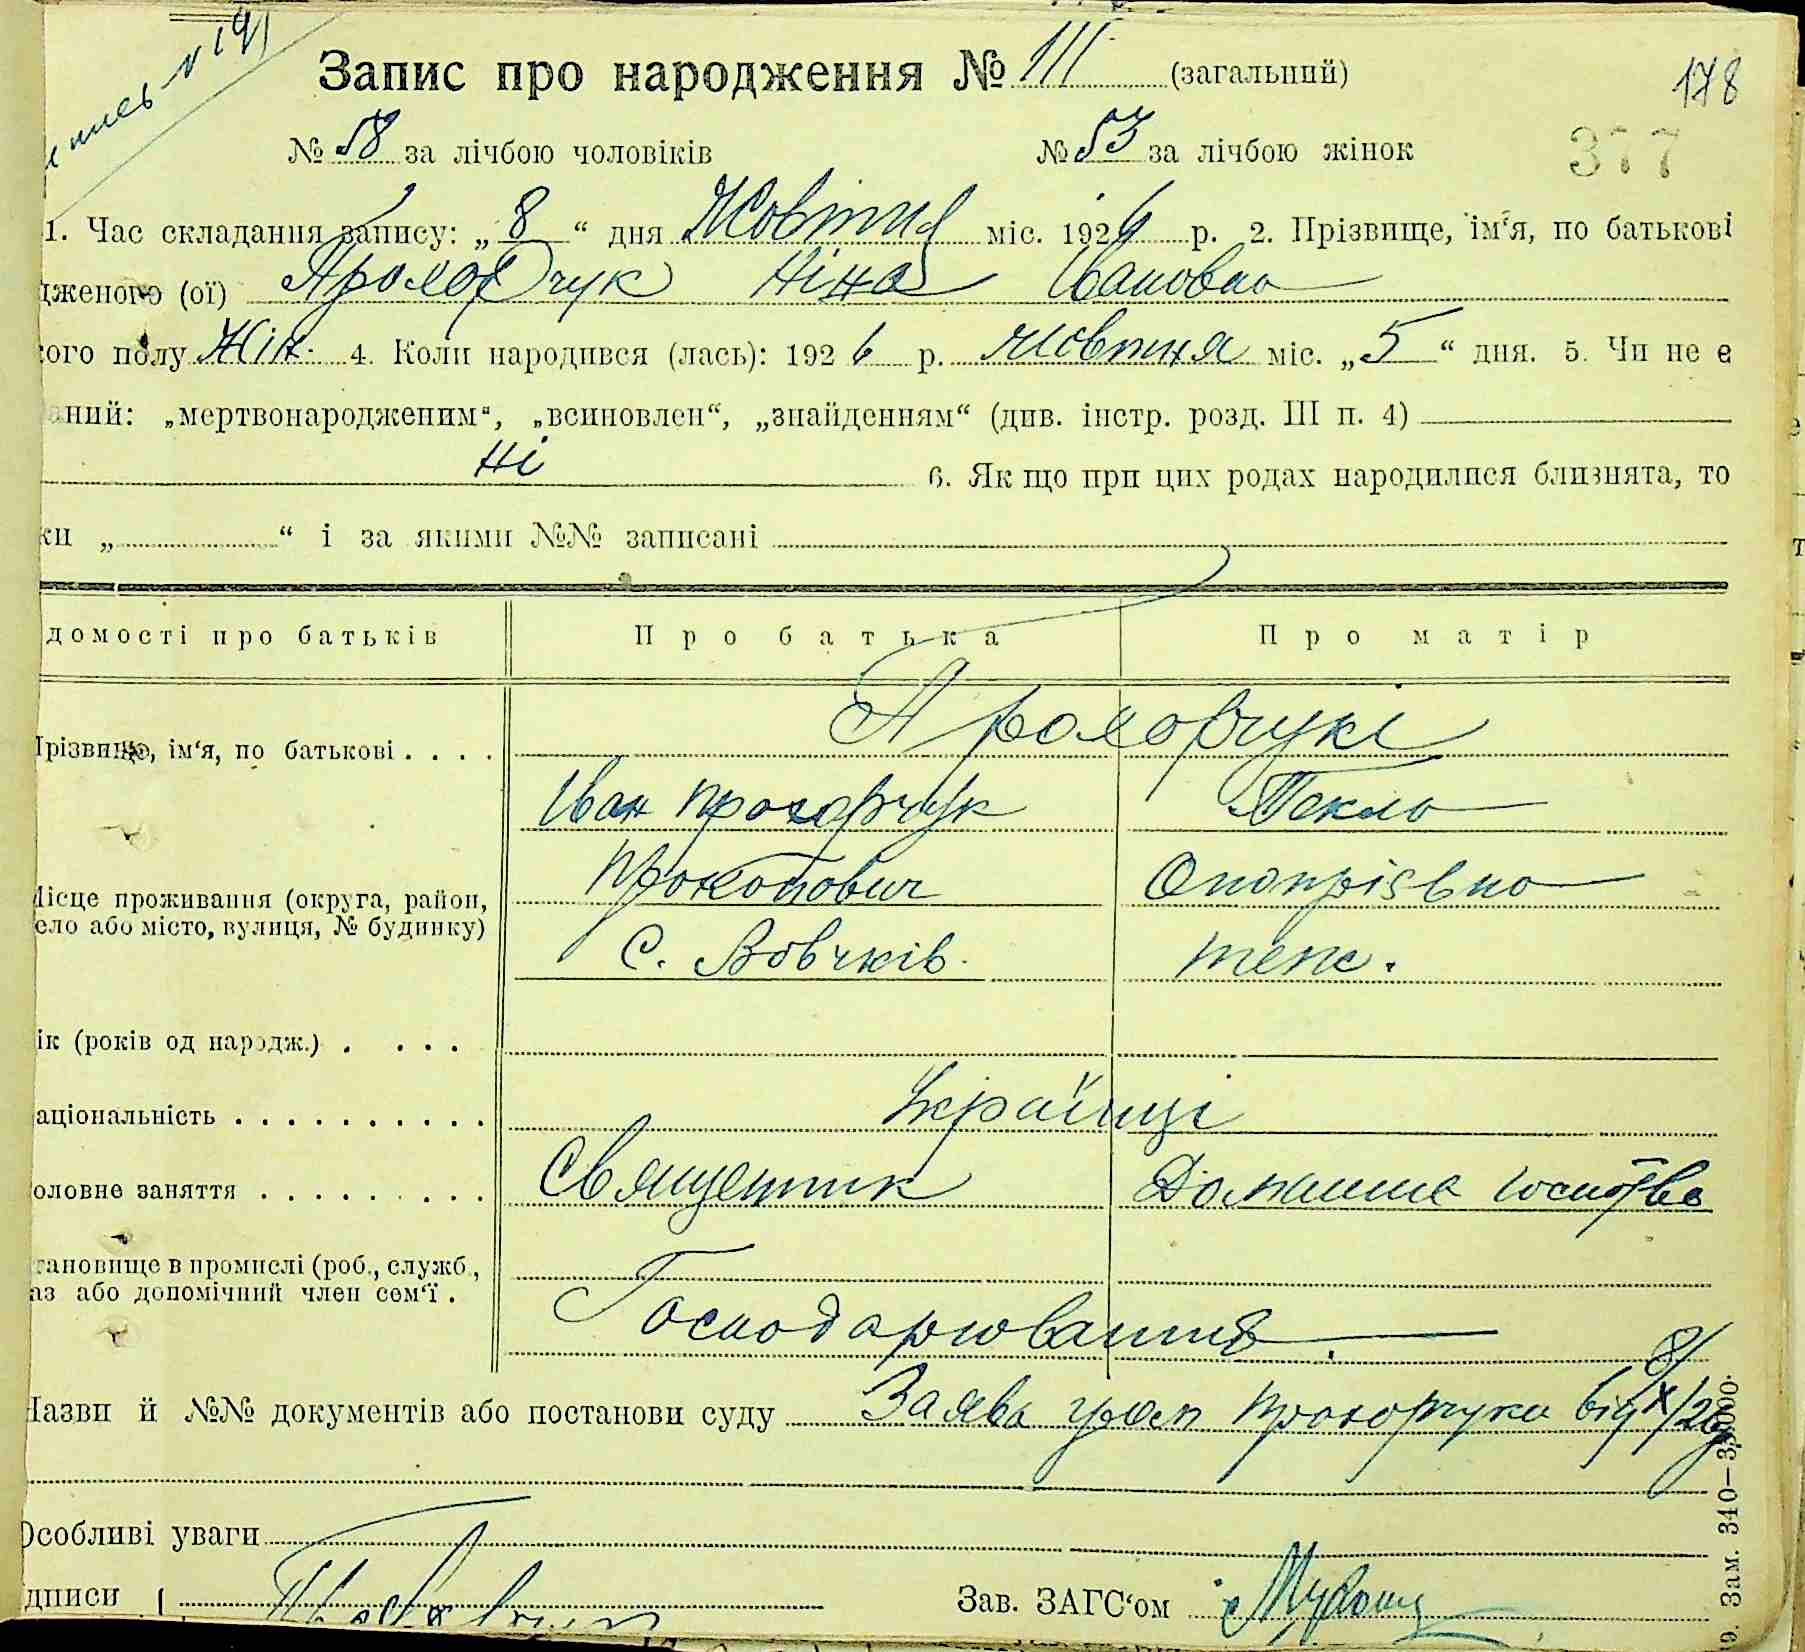 Запис про народження № 111 (загальний)
178
№ 58 за лічбою чоловіків № 53 за лічбою жінок
377
1. Час складання запису: „8“ дня Жовтня міс. 1926 р. 2. Прізвище, ім‘я, по батькові
дженого (ої) Прохорчук Ніна Івановна
ого полу Жін. 4. Коли народився (лась): 1926 р. жовтня міс. „5“ дня. 5. Чи не є
аний: „мертвонародженим“, „всиновлен“, „знайденням“ (див. інстр. розд. III п. 4)
Ні 6. Як що при цих родах народилися близнята, то
ки „ “ і за якими №№ записані
домості про батьків Про батька Про матір
Прохорчукі
різвище, ім‘я, по батькові . . . .
Іван Прохорчук Текля
Прокопович Онопріевна
ісце проживання (округа, район,
ело або місто, вулиця, № будинку)
С. Вовчків теж.
ік (років од народж.) . . . .
аціональність . . . . . . . . . . Українці
оловне заняття . . . . . . . . . Священник Домашнє господ-во
тановище в промислі (роб., служб.,
аз або допоміжний член сем‘ї .
Господарювання.
Назви й №№ документів або постанови суду Заява гром Прохорчука від 8/X/26р
Особливі уваги
дписи Зав. ЗАГС‘ом
Зам. 340—33000.